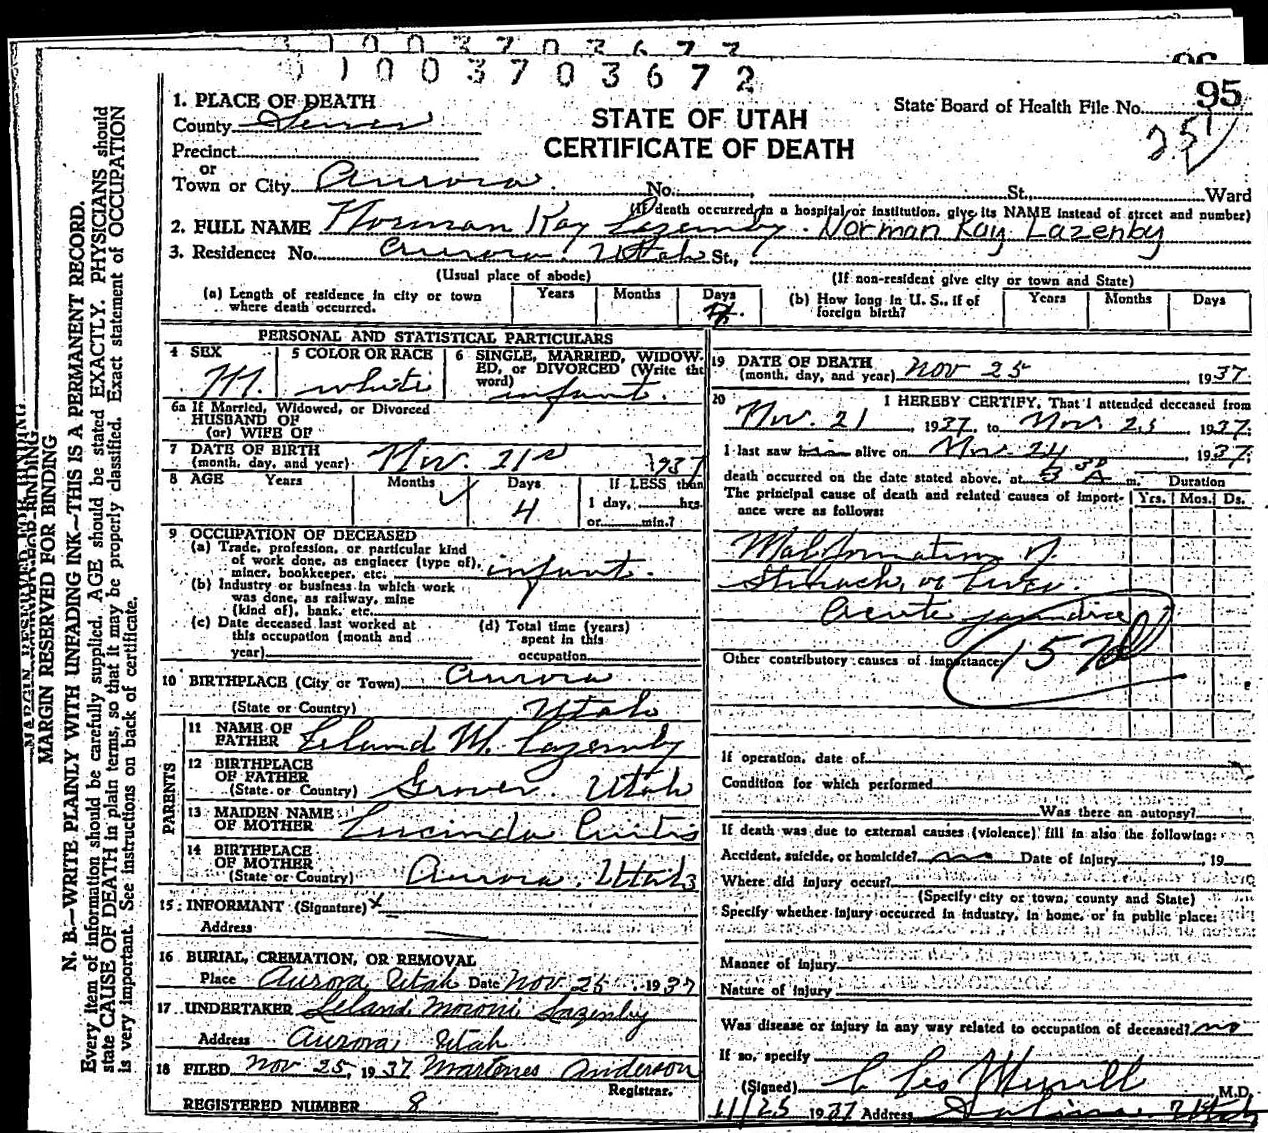 01003703672
95
State Board of Health File No.
251
STATE OF UTAH
CERTIFICATE OF DEATH
1. PLACE OF DEATH
County Sevier
Precinct
or
Town or City Aurora No. St. Ward
(If death occurred in a hospital or institution, give its NAME instead of street and number)
2. FULL NAME Norman Kay Lazenby - Norman Kay Lazenby
3. Residence: No. Aurora Utah St.,
(Usual place of abode) (If non-resident give city or town and State)
(a) Length of residence in city or town where death occurred. Years Months Days
(b) How long in U. S., if of foreign birth? Years Months Days
PERSONAL AND STATISTICAL PARTICULARS
4 SEX M. 5 COLOR OR RACE white 6 SINGLE, MARRIED, WIDOWED, or DIVORCED (Write the word) infant.
6a If Married, Widowed, or Divorced
HUSBAND OF
(or) WIFE OF
7 DATE OF BIRTH
(month, day, and year) Nov. 21st 1937
8 AGE Years Months Days 4 If LESS than
1 day, hrs.
or min.?
9 OCCUPATION OF DECEASED
(a) Trade, profession, or particular kind
of work done, as engineer (type of),
miner, bookkeeper, etc. infant.
(b) Industry or business in which work
was done, as railway, mine
(kind of), bank, etc.
(c) Date deceased last worked at
this occupation (month and
year)
(d) Total time (years)
spent in this
occupation
10 BIRTHPLACE (City or Town) Aurora
(State or Country) Utah
PARENTS
11 NAME OF
FATHER Leland M. Lazenby
12 BIRTHPLACE
OF FATHER
(State or Country) Grover Utah
13 MAIDEN NAME
OF MOTHER Lucinda Curtis
14 BIRTHPLACE
OF MOTHER
(State or Country) Aurora, Utah
15 INFORMANT (Signature) x
Address
16 BURIAL, CREMATION, OR REMOVAL
Place Aurora, Utah Date Nov 25 1937
17 UNDERTAKER Leland Moroni Lazenby
Address Aurora Utah
18 FILED Nov 25, 1937 Anderson
Registrar.
REGISTERED NUMBER 8
19 DATE OF DEATH
(month, day, and year) Nov 25 1937
20 I HEREBY CERTIFY, That I attended deceased from
Nov. 21, 1937, to Nov. 25 1937;
I last saw him alive on Nov 24, 1937;
death occurred on the date stated above, at A m. Duration
The principal cause of death and related causes of importance were as follows: Yrs. Mos. Ds.
Malformation of
Stomach, or Liver
Acute jaundice
Other contributory causes of importance:
157
If operation, date of
Condition for which performed
Was there an autopsy?
If death was due to external causes (violence) fill in also the following:
Accident, suicide, or homicide? no Date of injury 19
Where did injury occur?
(Specify city or town, county and State)
Specify whether injury occurred in industry, in home, or in public place:
Manner of injury
Nature of injury
Was disease or injury in any way related to occupation of deceased? no
If so, specify
(Signed) C Leo Merrill M.D.
11/25 1937 Address Salina Utah
MARGIN RESERVED FOR BINDING
N. B.—WRITE PLAINLY WITH UNFADING INK—THIS IS A PERMANENT RECORD.
Every item of information should be carefully supplied. AGE should be stated EXACTLY. PHYSICIANS should
state CAUSE OF DEATH in plain terms, so that it may be properly classified. Exact statement of OCCUPATION
is very important. See instructions on back of certificate.